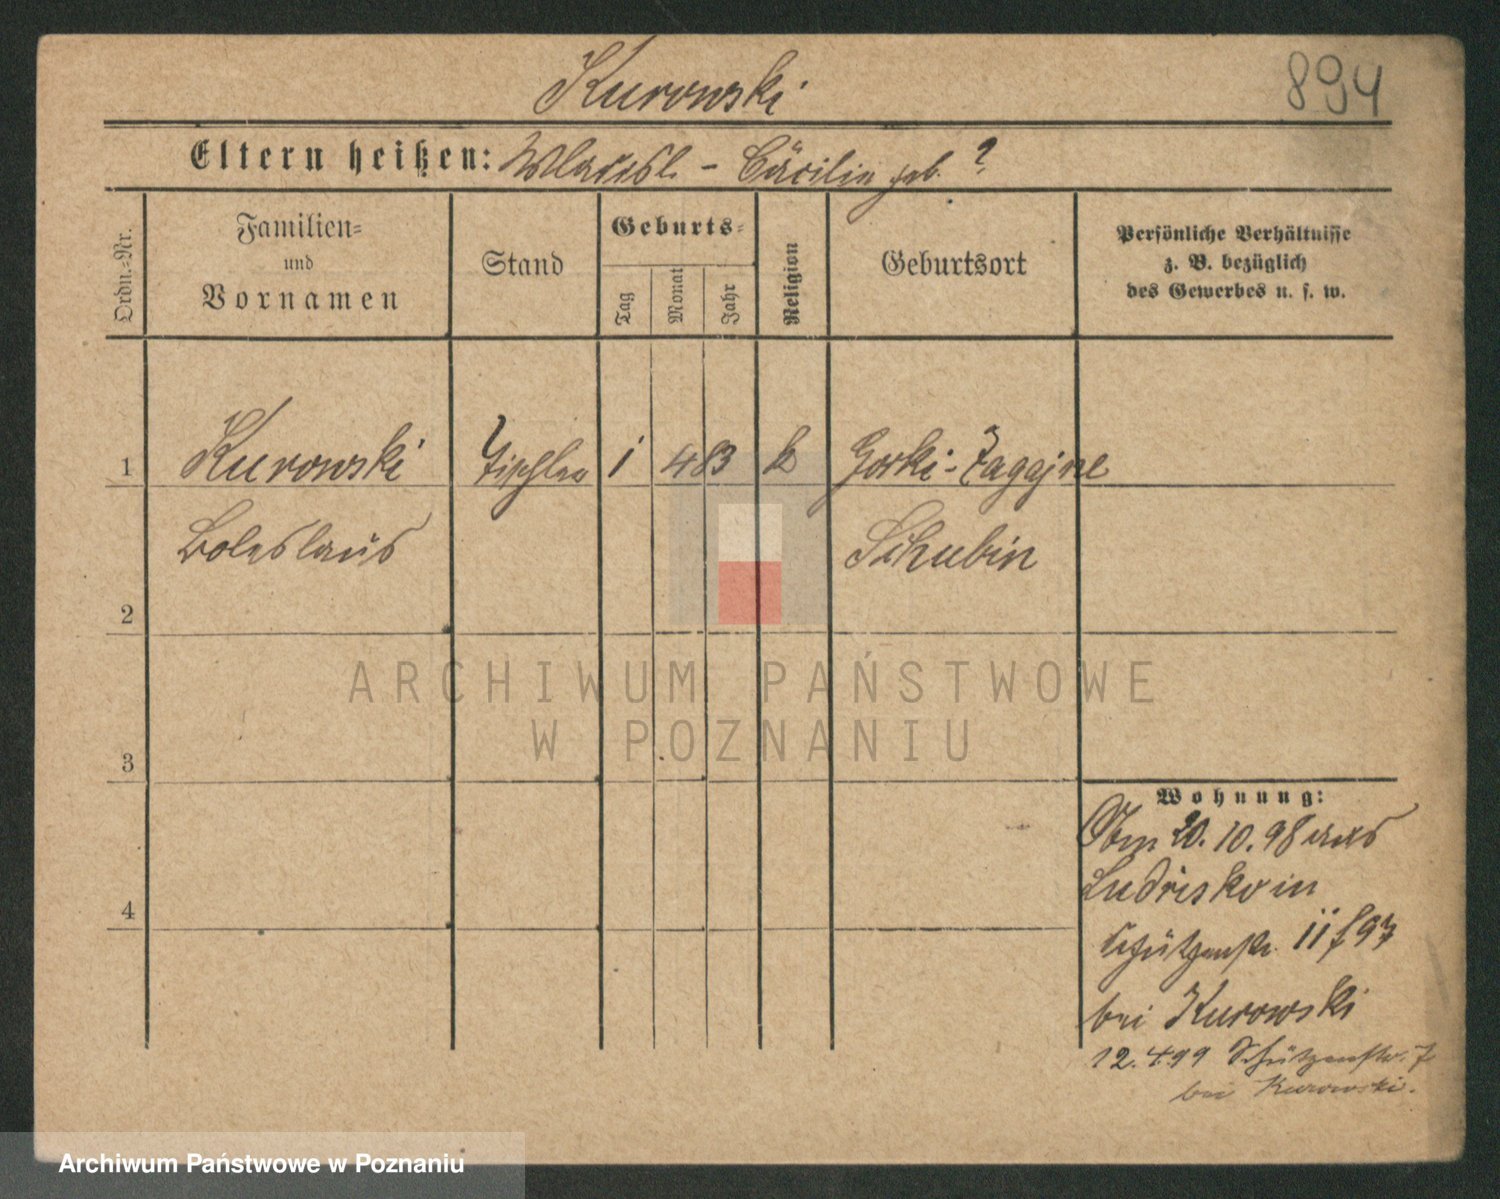 Kurowski
894
Eltern heißen: Wladisl. - Cäcilia geb. ?
Ordn.-Nr.
Familien-
und
Vornamen
Stand
Geburts-
Tag
Monat
Jahr
Religion
Geburtsort
Persönliche Verhältnisse
z. B. bezüglich
des Gewerbes u. s. w.
1 Kurowski Tischler 1 4 83 k Gorki-Zagajne
Boleslaus Schubin
2
3
4
Wohnung:
20. 10. 98 aus
Ludzisko in
Schützenstr.
bei Kurowski
12. 4 99 Schützenstr. 7
bei Kurowski.
ARCHIWUM PAŃSTWOWE
W POZNANIU
Archiwum Państwowe w Poznaniu